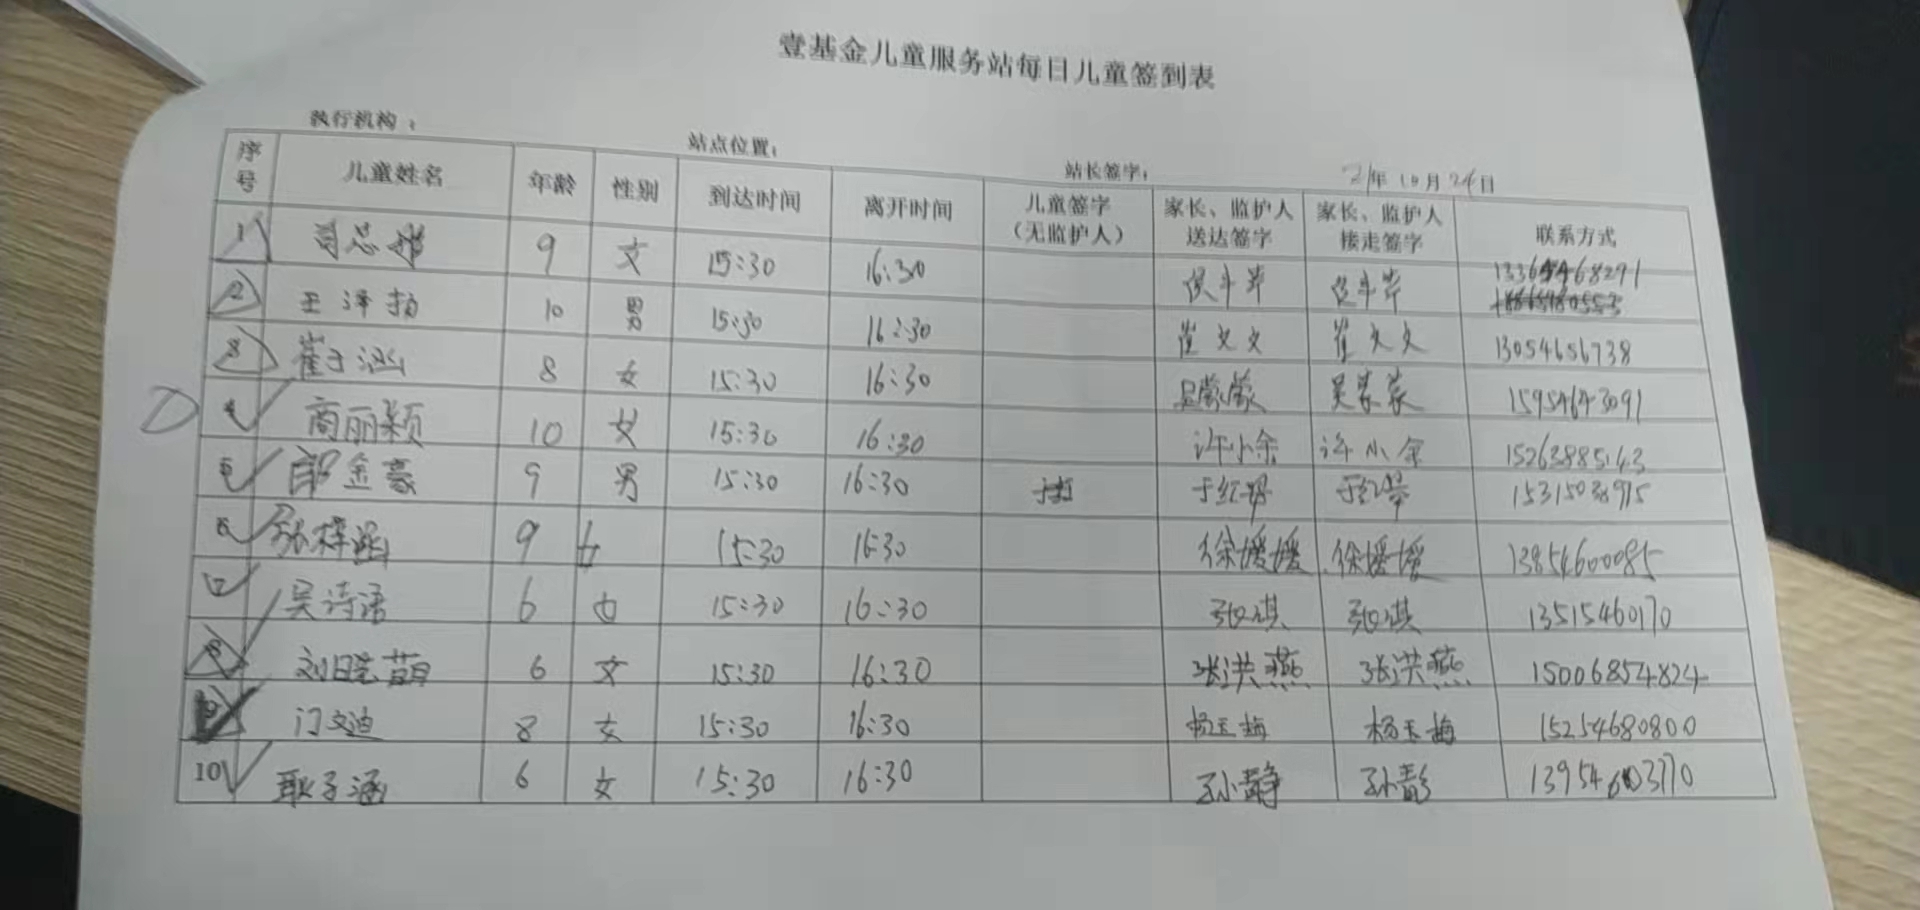 壹基金儿童服务站每日儿童签到表
执行机构： 站点位置： 站长签字： 21年10月24日
序号 儿童姓名 年龄 性别 到达时间 离开时间 儿童签字（无监护人） 家长、监护人送达签字 家长、监护人接走签字 联系方式
1 9 女 15:30 16:30
2 王泽 10 男 15:30 16:30 崔文文 崔文文 13054656738
3 崔子涵 8 女 15:30 16:30 吴蒙蒙 吴蒙蒙 15954643091
4 商丽颖 10 女 15:30 16:30 许小余 许小余 15263885143
5 郎金豪 9 男 15:30 16:30 于红 于红
6 张梓涵 9 女 15:30 16:30 徐媛媛 徐媛媛 13854600085
7 吴诗语 6 女 15:30 16:30 张琪 张琪 13515460170
8 刘晓萌 6 女 15:30 16:30 张洪燕 张洪燕 15006854824
9 门文迪 8 女 15:30 16:30 杨玉梅 杨玉梅 15254680800
10 耿子涵 6 女 15:30 16:30 孙静 孙静